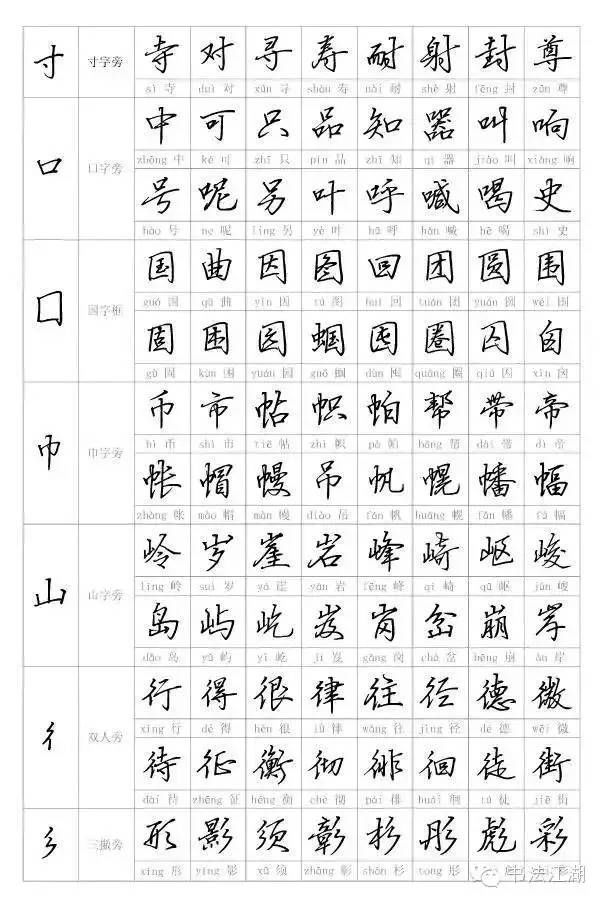 寸 寸字旁 寺 对 寻 寿 耐 射 封 尊
sì 寺 duì 对 xún 寻 shòu 寿 nài 耐 shè 射 fēng 封 zūn 尊
口 口字旁 中 可 只 品 知 器 叫 响
zhōng 中 kě 可 zhī 只 pǐn 品 zhī 知 qì 器 jiào 叫 xiǎng 响
号 呢 另 叶 呼 喊 喝 史
hào 号 ne 呢 lìng 另 yè 叶 hū 呼 hǎn 喊 hē 喝 shǐ 史
囗 国字框 国 曲 因 图 回 团 圆 围
guó 国 qū 曲 yīn 因 tú 图 huí 回 tuán 团 yuán 圆 wéi 围
固 困 园 蝈 囤 圈 囚 囟
gù 固 kùn 困 yuán 园 guō 蝈 dùn 囤 quāng 圈 qiú 囚 xìn 囟
巾 巾字旁 币 市 帖 帜 帕 帮 带 帝
bì 币 shì 市 tiē 帖 zhì 帜 pà 帕 bāng 帮 dài 带 dì 帝
帐 帽 幔 吊 帆 幌 幡 幅
zhàng 帐 mào 帽 màn 幔 diào 吊 fān 帆 huǎng 幌 fān 幡 fú 幅
山 山字旁 岭 岁 崖 岩 峰 崎 岖 峻
lǐng 岭 suì 岁 yá 崖 yán 岩 fēng 峰 qí 崎 qū 岖 jùn 峻
岛 屿 屹 岌 岗 岔 崩 岸
dǎo 岛 yǔ 屿 yì 屹 jí 岌 gǎng 岗 chà 岔 bēng 崩 àn 岸
彳 双人旁 行 得 很 律 往 径 德 微
xíng 行 dé 得 hěn 很 lǜ 律 wǎng 往 jìng 径 dé 德 wēi 微
待 征 衡 彻 徘 徊 徒 街
dài 待 zhēng 征 héng 衡 chè 彻 pái 徘 huái 徊 tú 徒 jiē 街
彡 三撇旁 形 影 须 彰 杉 彤 彪 彩
xíng 形 yǐng 影 xū 须 zhāng 彰 shān 杉 tóng 彤
书法江湖